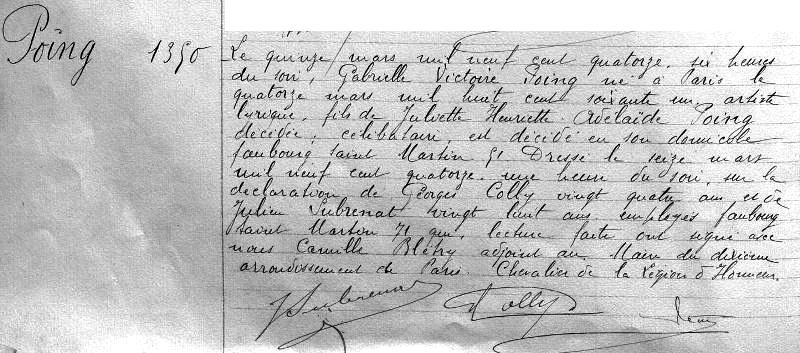 Poing 1350
Le quinze mars mil neuf cent quatorze, six heures
du soir, Gabrielle Victoire Poing né à Paris le
quatorze mars mil huit cent soixante un, artiste
lyrique, fils de Juliette Henriette Adélaïde Poing
décédée, célibataire, est décédé en son domicile
faubourg saint Martin 51 Dressé le seize mars
mil neuf cent quatorze, une heure du soir, sur la
déclaration de Georges Colly vingt quatre ans et de
Julien Subrenat vingt huit ans, employés faubourg
saint Martin 71 qui, lecture faite ont signé avec
nous Camille Blétry adjoint au Maire du dixième
arrondissement de Paris. Chevalier de la Légion d'Honneur.
JSubrenat Colly